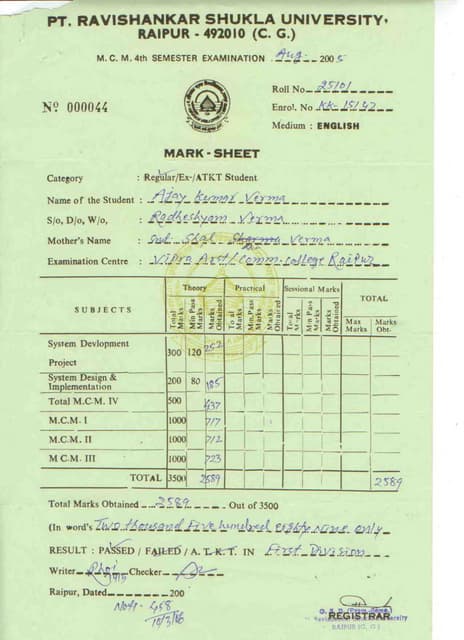 PT. RAVISHANKAR SHUKLA UNIVERSITY,
RAIPUR - 492010 (C. G.)
M. C. M. 4th SEMESTER EXAMINATION Aug- 2005
Roll No. 25101
Nº 000044
Enrol. No KK-15142
Medium : ENGLISH
MARK - SHEET
Category : Regular/Ex-/ATKT Student
Name of the Student : Ajay Kumar Verma
S/o, D/o, W/o, : Radheshyam Verma
Mother's Name : Smt Verma
Examination Centre : Vipra Art/Comm. College Raipur
SUBJECTS Theory Practical Sessional Marks TOTAL
Total Marks Min Pass Marks Marks Obtained Total Marks Min Pass Marks Marks Obtained Total Marks Min Pass Marks Marks Obtained Max Marks Marks Obt-
System Devlopment
Project 300 120 252
System Design &
Implementation 200 80 185
Total M.C.M. IV 500 437
M.C.M. I 1000 717
M.C.M. II 1000 712
M C.M. III 1000 723
TOTAL 3500 2589 2589
Total Marks Obtained 2589 Out of 3500
(In word's Two thousand Five hundred eighty Nine only
RESULT : PASSED / FAILED / A. T. K. T. IN First Division
Writer Checker
Raipur, Dated 200
REGISTRAR
RAIPUR (C. G.)